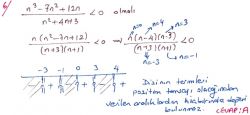 6/ n³-7n²+12n / n²+4n+3 < 0 olmalı
n(n²-7n+12) / (n+3)(n+1) < 0 ⇒ n(n-4)(n-3) / (n+3)(n+1) < 0
n=0 n=4 n=3
n=-3 n=-1
-3 -1 0 3 4
- + - + - +
Dizinin terimleri
pozitif tamsayı olacağından
verilen aralıklardan hiçbirinde değeri
bulunmaz.
CEVAP: A